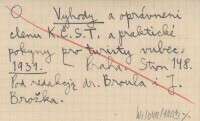 O Výhody a oprávnění
členů K.Č.S.T. a praktické
pokyny pro turisty vůbec.
1931. Praha. Stran 148.
Pod redakcí dr. Broula i J.
Brožka.